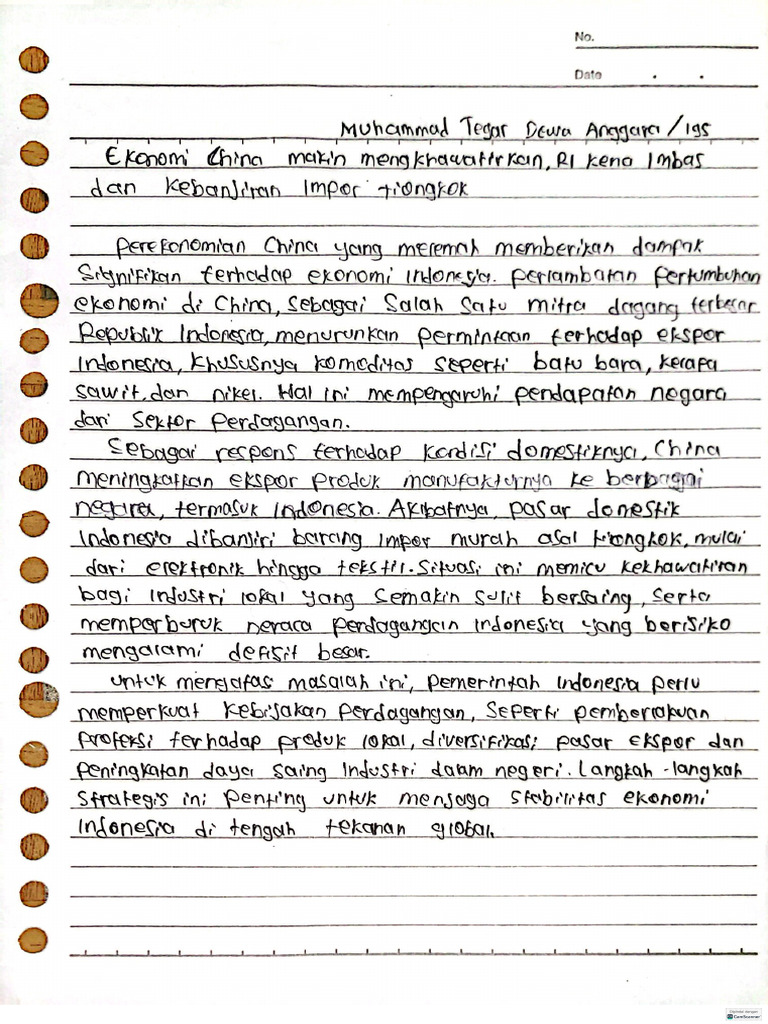 No.
Date
Muhammad Tegar Dewa Anggara / 195
Ekonomi China makin mengkhawatirkan, RI kena Imbas
dan kebanjiran Impor tiongkok
Perekonomian China yang melemah memberikan dampak
Signifikan terhadap ekonomi Indonesia. perlambatan Pertumbuhan
ekonomi di China, Sebagai Salah Satu mitra dagang terbesar
Republik Indonesia, menurunkan permintaan terhadap ekspor
Indonesia, Khususnya komoditas seperti batu bara, kelapa
sawit, dan nikel. Hal ini mempengaruhi pendapatan negara
dari Sektor Perdagangan.
Sebagai respons terhadap kondisi domestiknya, China
meningkatkan ekspor Produk manufakturnya ke berbagai
negara, termasuk Indonesia. Akibatnya, pasar domestik
Indonesia dibanjiri barang impor murah asal tiongkok, mulai
dari elektronik hingga tekstil. Situasi ini memicu kekhawatiran
bagi Industri lokal yang Semakin sulit bersaing, Serta
memperburuk neraca perdagangan Indonesia yang berisiko
mengalami defisit besar.
Untuk mengatasi masalah ini, pemerintah Indonesia perlu
memperkuat Kebijakan Perdagangan, Seperti pemberlakuan
Proteksi terhadap produk lokal, diversifikasi pasar ekspor dan
Peningkatan daya saing Industri dalam negeri. Langkah-langkah
Strategis ini Penting untuk menjaga stabilitas ekonomi
Indonesia di tengah tekanan global.
CamScanner